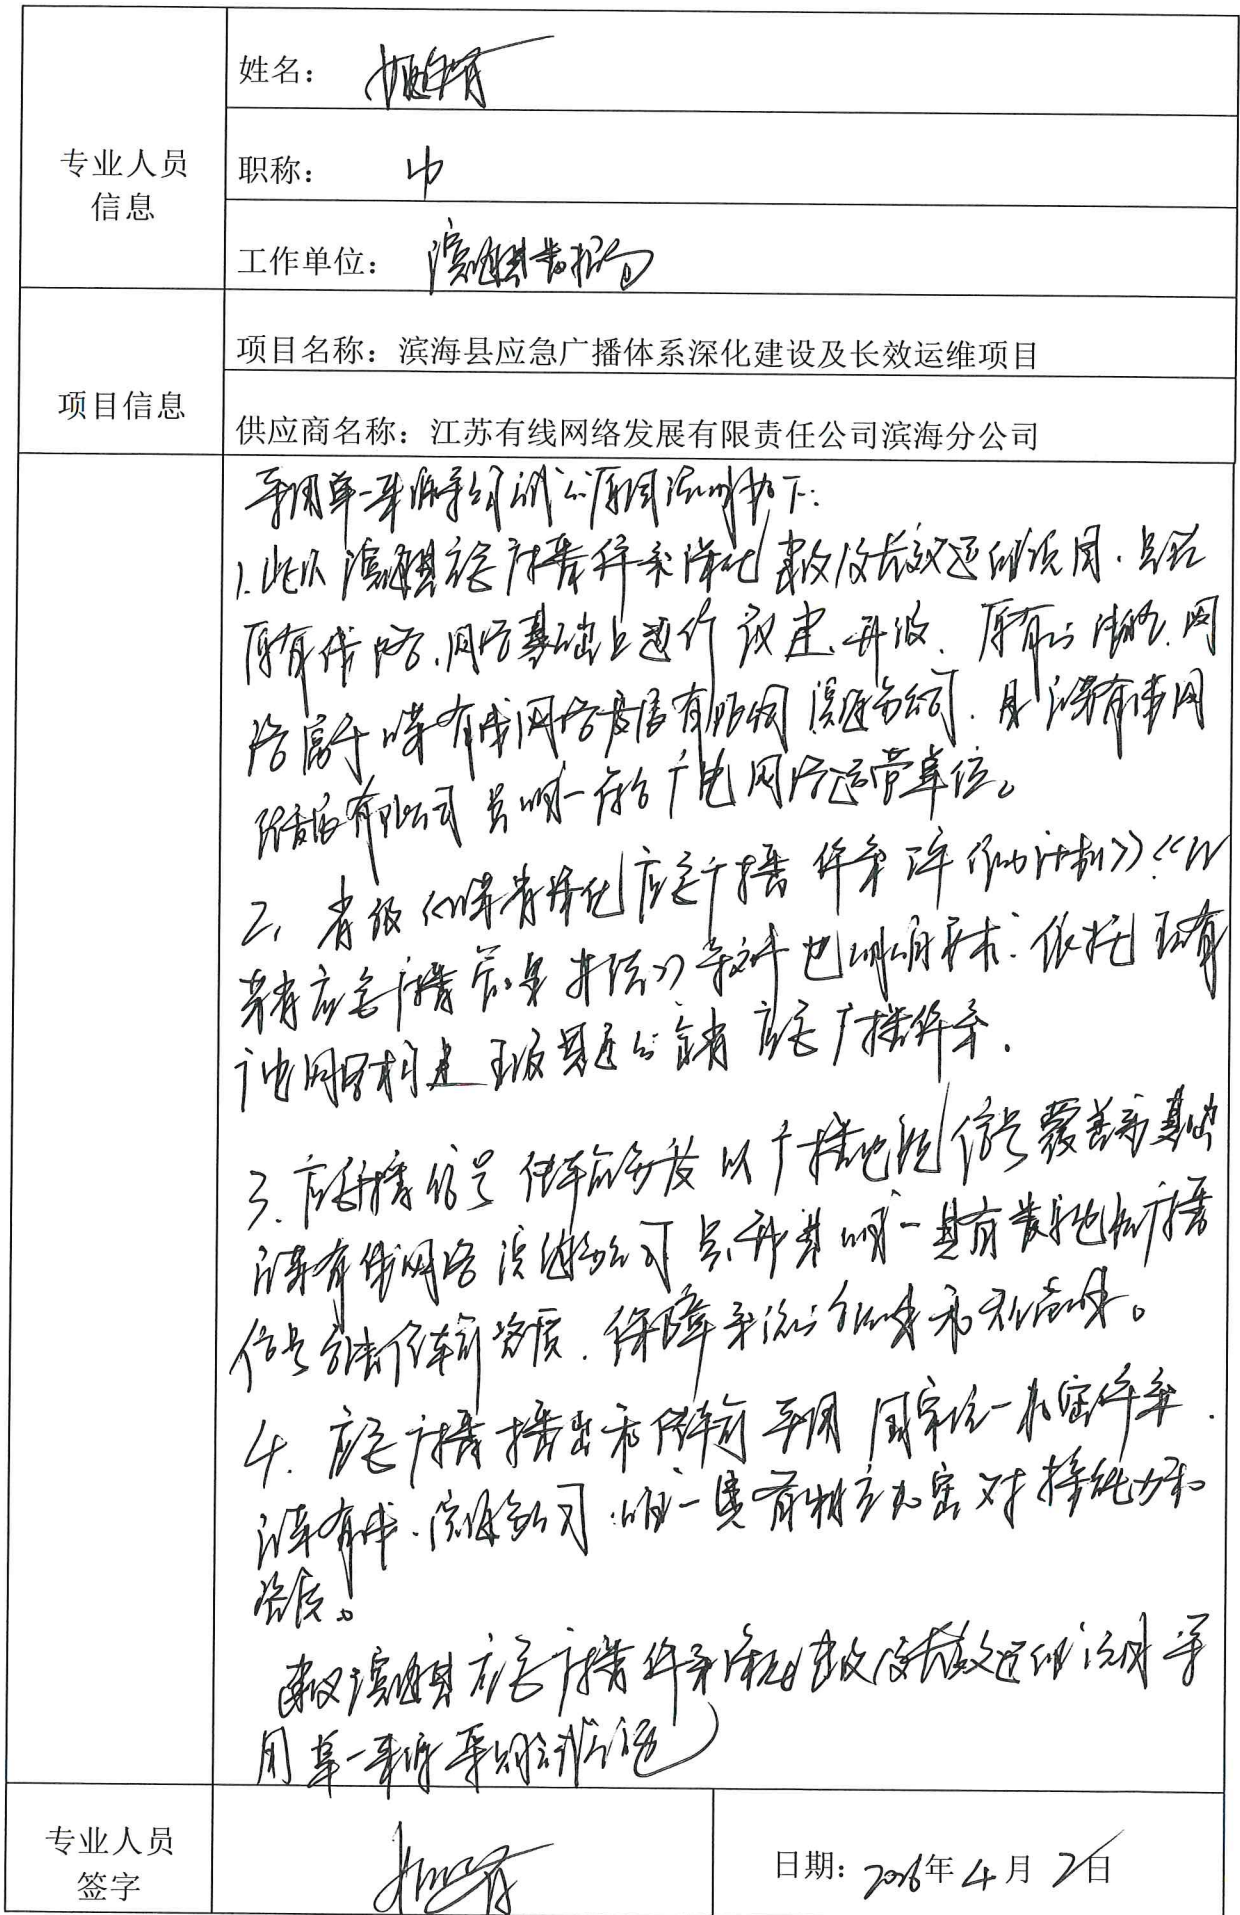 专业人员
信息
姓名：
职称：中
工作单位：滨海县数据局
项目信息
项目名称：滨海县应急广播体系深化建设及长效运维项目
供应商名称：江苏有线网络发展有限责任公司滨海分公司
采用单一来源采购的原因说明如下：
1.此次滨海县应急广播体系深化建设及长效运维项目，是在
原有线路、网络基础上进行改建、升级，原有的线路、网
络属于江苏有线网络发展有限公司滨海分公司，且江苏有线网
络发展有限公司是唯一的广电网络运营单位。
2、省级《江苏省深化应急广播体系行动计划》《江
苏省应急广播管理办法》等文件也明确要求：依托现有
广电网络构建五级贯通的全省应急广播体系.
3.应急广播信号传输分发以广播电视信号覆盖为基础
江苏有线网络滨海分公司是我县唯一具有广播
信号传输资质，保障系统的和。
4.应急广播播出和传输采用国家统一加密体系，
江苏有线滨海分公司唯一具有相应加密对接能力和
资质。
建议滨海县应急广播体系深化建设及长效运维项目采
用单一来源采购
专业人员
签字
日期：2026年4月2日